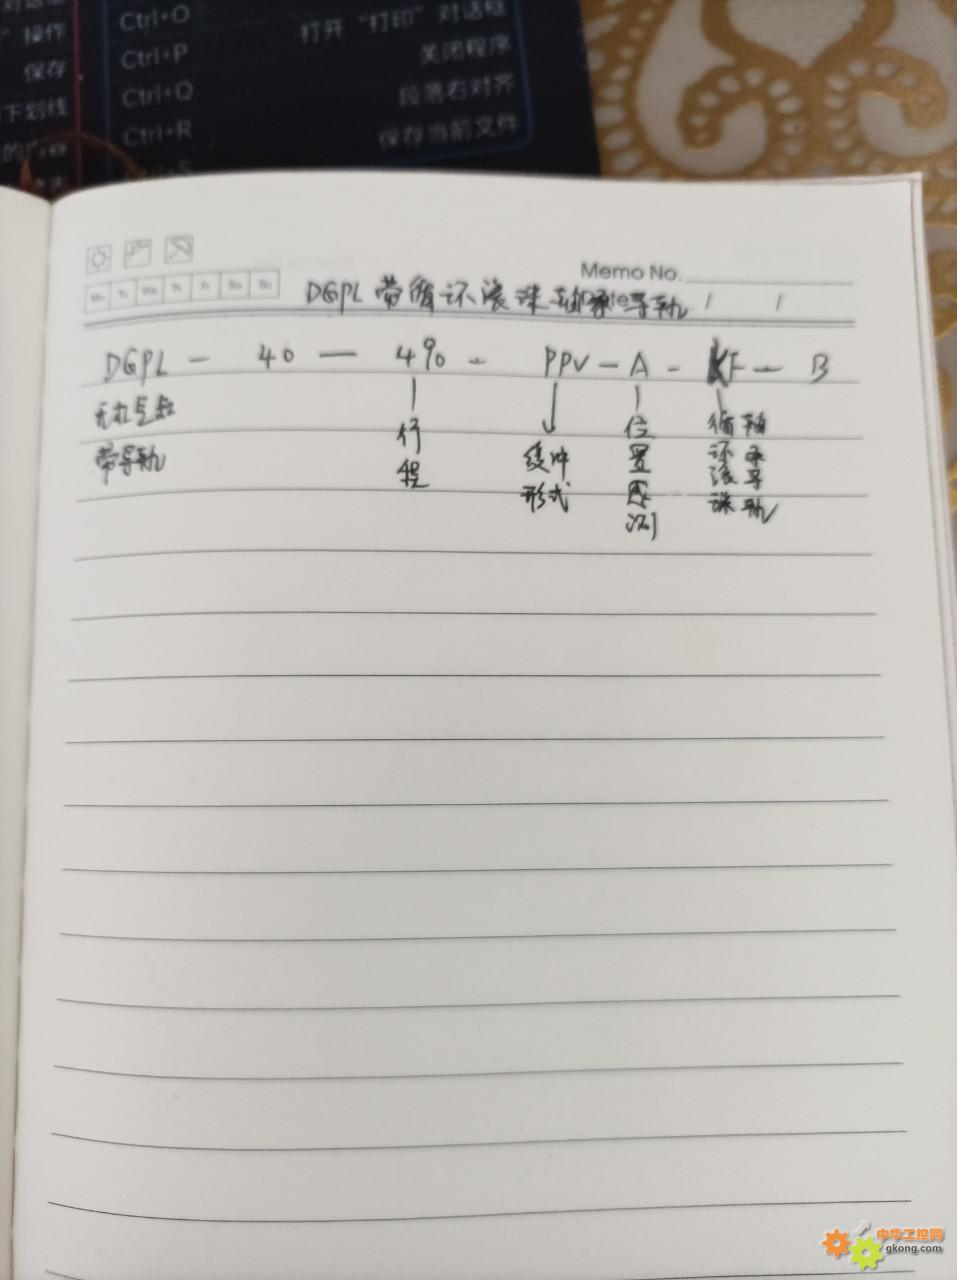 对话框
Ctrl+O
打开“打印”对话框
”操作
Ctrl+P
关闭程序
保存
Ctrl+Q
段落右对齐
下划线
Ctrl+R
保存当前文件
Memo No.
DGPL带循环滚珠轴承导轨
DGPL — 40 — 490 - PPV — A - KF — B
无杆气缸
带导轨
行程
缓冲形式
位置感测
循环滚珠
轴承导轨
中华工控网
gkong.com